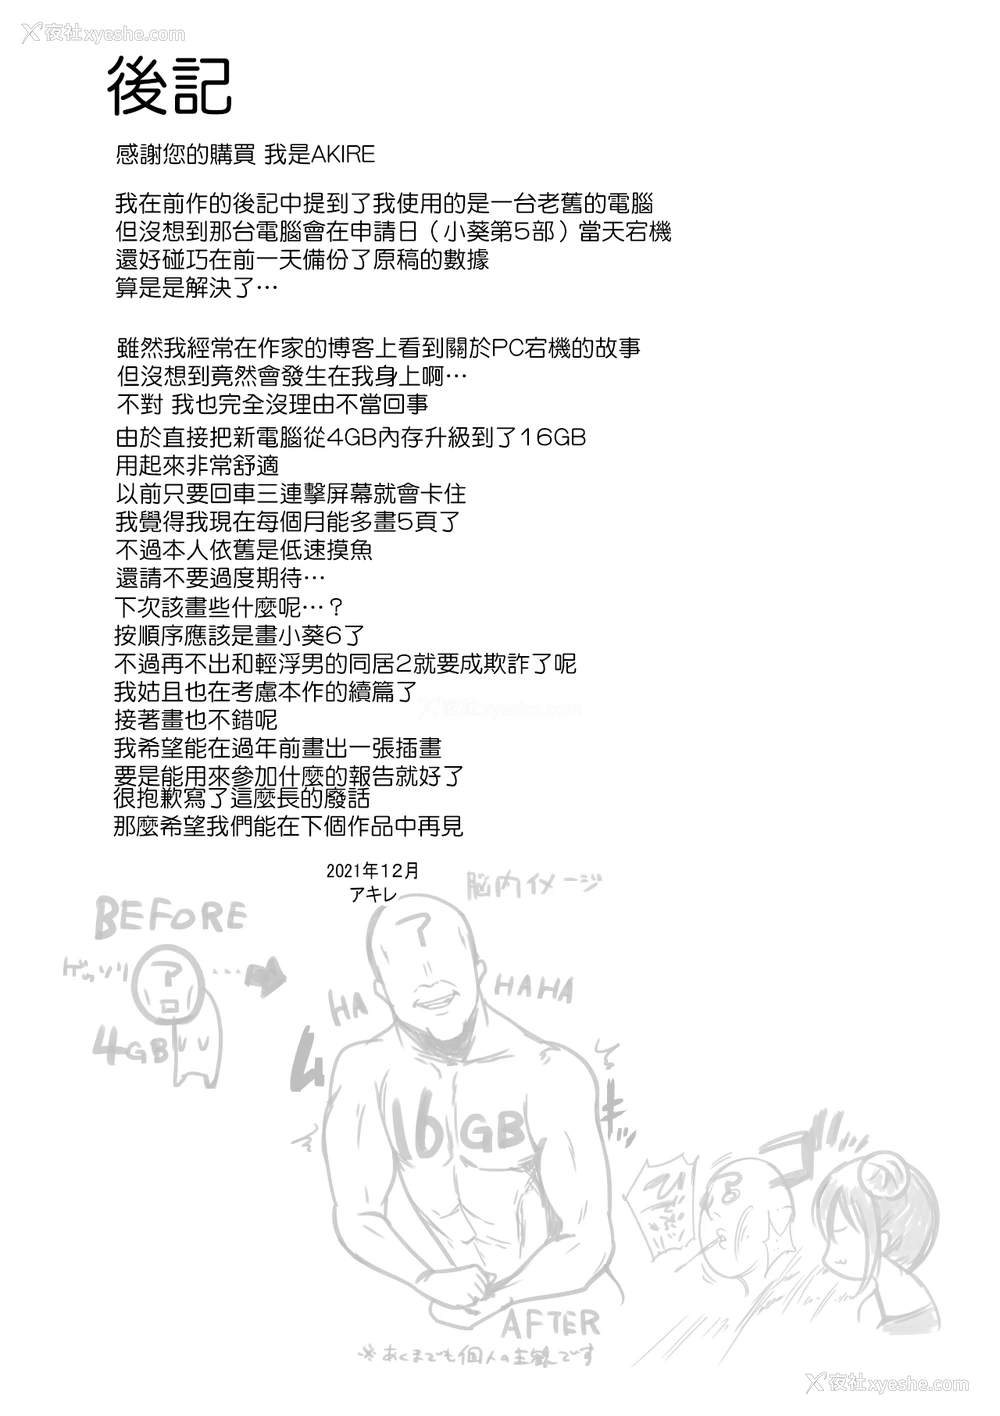 夜社xyeshe.com
後記
感謝您的購買 我是AKIRE
我在前作的後記中提到了我使用的是一台老舊的電腦
但沒想到那台電腦會在申請日（小葵第5部）當天宕機
還好碰巧在前一天備份了原稿的數據
算是是解決了…
雖然我經常在作家的博客上看到關於PC宕機的故事
但沒想到竟然會發生在我身上啊…
不對 我也完全沒理由不當回事
由於直接把新電腦從4GB內存升級到了16GB
用起來非常舒適
以前只要回車三連擊屏幕就會卡住
我覺得我現在每個月能多畫5頁了
不過本人依舊是低速摸魚
還請不要過度期待…
下次該畫些什麼呢…？
按順序應該是畫小葵6了
不過再不出和輕浮男的同居2就要成欺詐了呢
我姑且也在考慮本作的續篇了
接著畫也不錯呢
我希望能在過年前畫出一張插畫
要是能用來參加什麼的報告就好了
很抱歉寫了這麼長的廢話
那麼希望我們能在下個作品中再見
2021年12月
アキレ
脳内イメージ
BEFORE
ゲッソリ
ア
口
…
4GB
ア
HA
HAHA
ム
キッ
16GB
AFTER
※あくまでも個人の主観です
夜社xyeshe.com